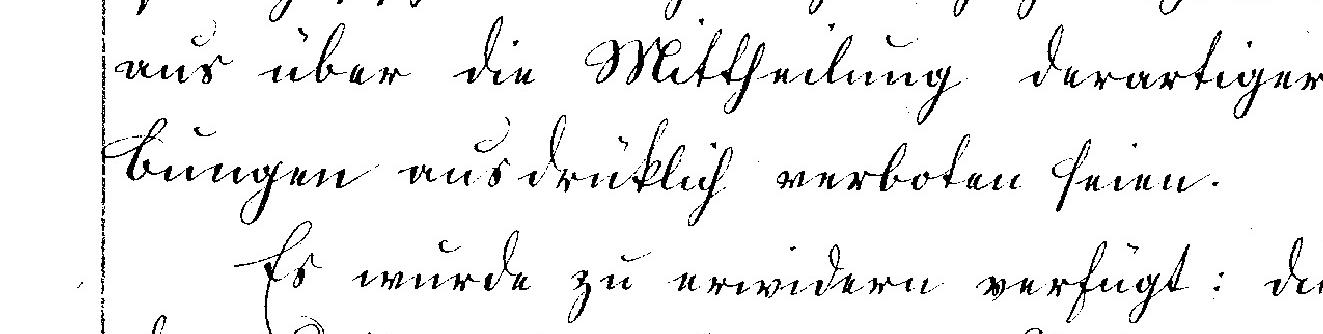 aus über die Mittheilung derartiger
bungen ausdrüklich verboten seien.
Es wurde zu erwidern verfügt: